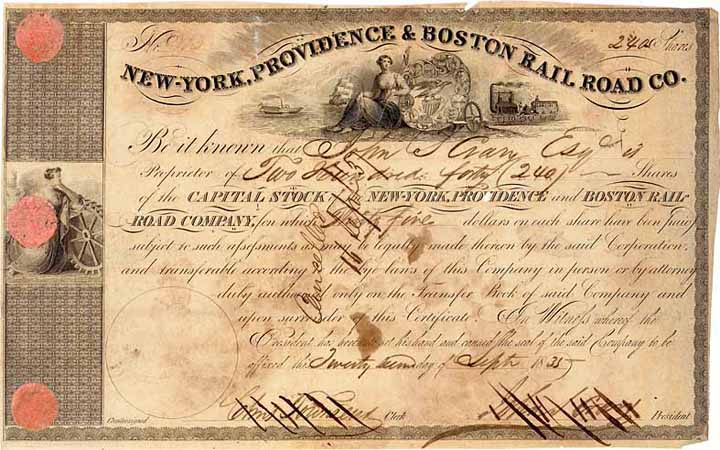 No.
240 Shares
NEW-YORK, PROVIDENCE & BOSTON RAIL ROAD CO.
Be it known that John S Crary Esqr is
Proprietor of Two Hundred forty (240) Shares
of the CAPITAL STOCK of the NEW-YORK, PROVIDENCE and BOSTON RAIL
ROAD COMPANY, on which five dollars on each share have been paid
subject to such assessments as may be legally made thereon by the said Corporation
and transferable according to the bye-laws of this Company in person or by attorney
duly authorised only on the Transfer Book of said Company and
upon surrender of this Certificate. In Witness whereof the
President has hereunto set his hand and caused the seal of the said Company to be
affixed this Twenty day of Sept 1835
Cancelled
16
Countersigned
Clerk
President